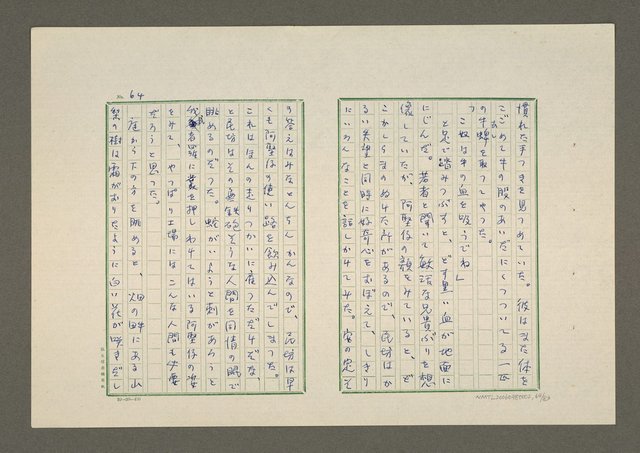 慣れた手つきを見つめていた。彼はまた体を
こごめて牛の股のあいだにくっついてる一匹
の牛蜱を取ってやった。
「この奴は牛の血を吸うでね」
と兄で踏みつぶすと、どす黒い血が地面に
にじんだ。若者と聞いて敏活な兄貴ぶりを想
像していたが、阿堅伯の顔をみていると、ど
こかしらまのぬけた所があるので、昆坊はか
るい失望と同時に好奇心をおぼえて、しきり
にいろんなことを話しかけてみた。案の定そ
NMTL20060980002, 64/83
No. 64
の答えはみなとんちんかんなので、昆坊は早
くも阿堅伯の使い路を飲み込んでしまった。
これはほんの走りつかいに雇っただけだな、
と昆坊はその無鉄砲そうな人間を同情の眼で
眺めるのだった。蛇がいようと刺があろうと
我武者羅に叢を押しわけてはいる阿堅伯の姿
をみて、やっぱり工場にはこんな人間も必要
だろうと思った。
庭から下の方を眺めると、畑の畔にある山
梨の樹は霜がおりたように白い花が咲きだし